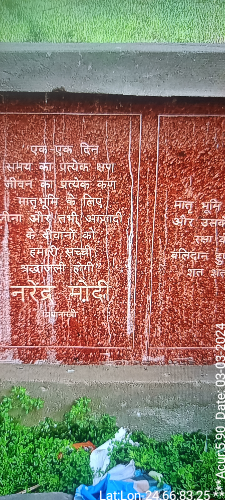 एक-एक दिन
समय का प्रत्येक क्षण
जीवन का प्रत्येक कण
मातृभूमि के लिए
जीना और तभी आजादी
के दीवानों को
हमारी सच्ची
श्रद्धांजली होगी
नरेन्द्र मोदी
प्रधानमंत्री
मातृ भूमि
और उसके
रक्षा
बलिदान
शत
Lat:Lon: 24.66:83.25
Acur:5.90 Date: 03-03-2024